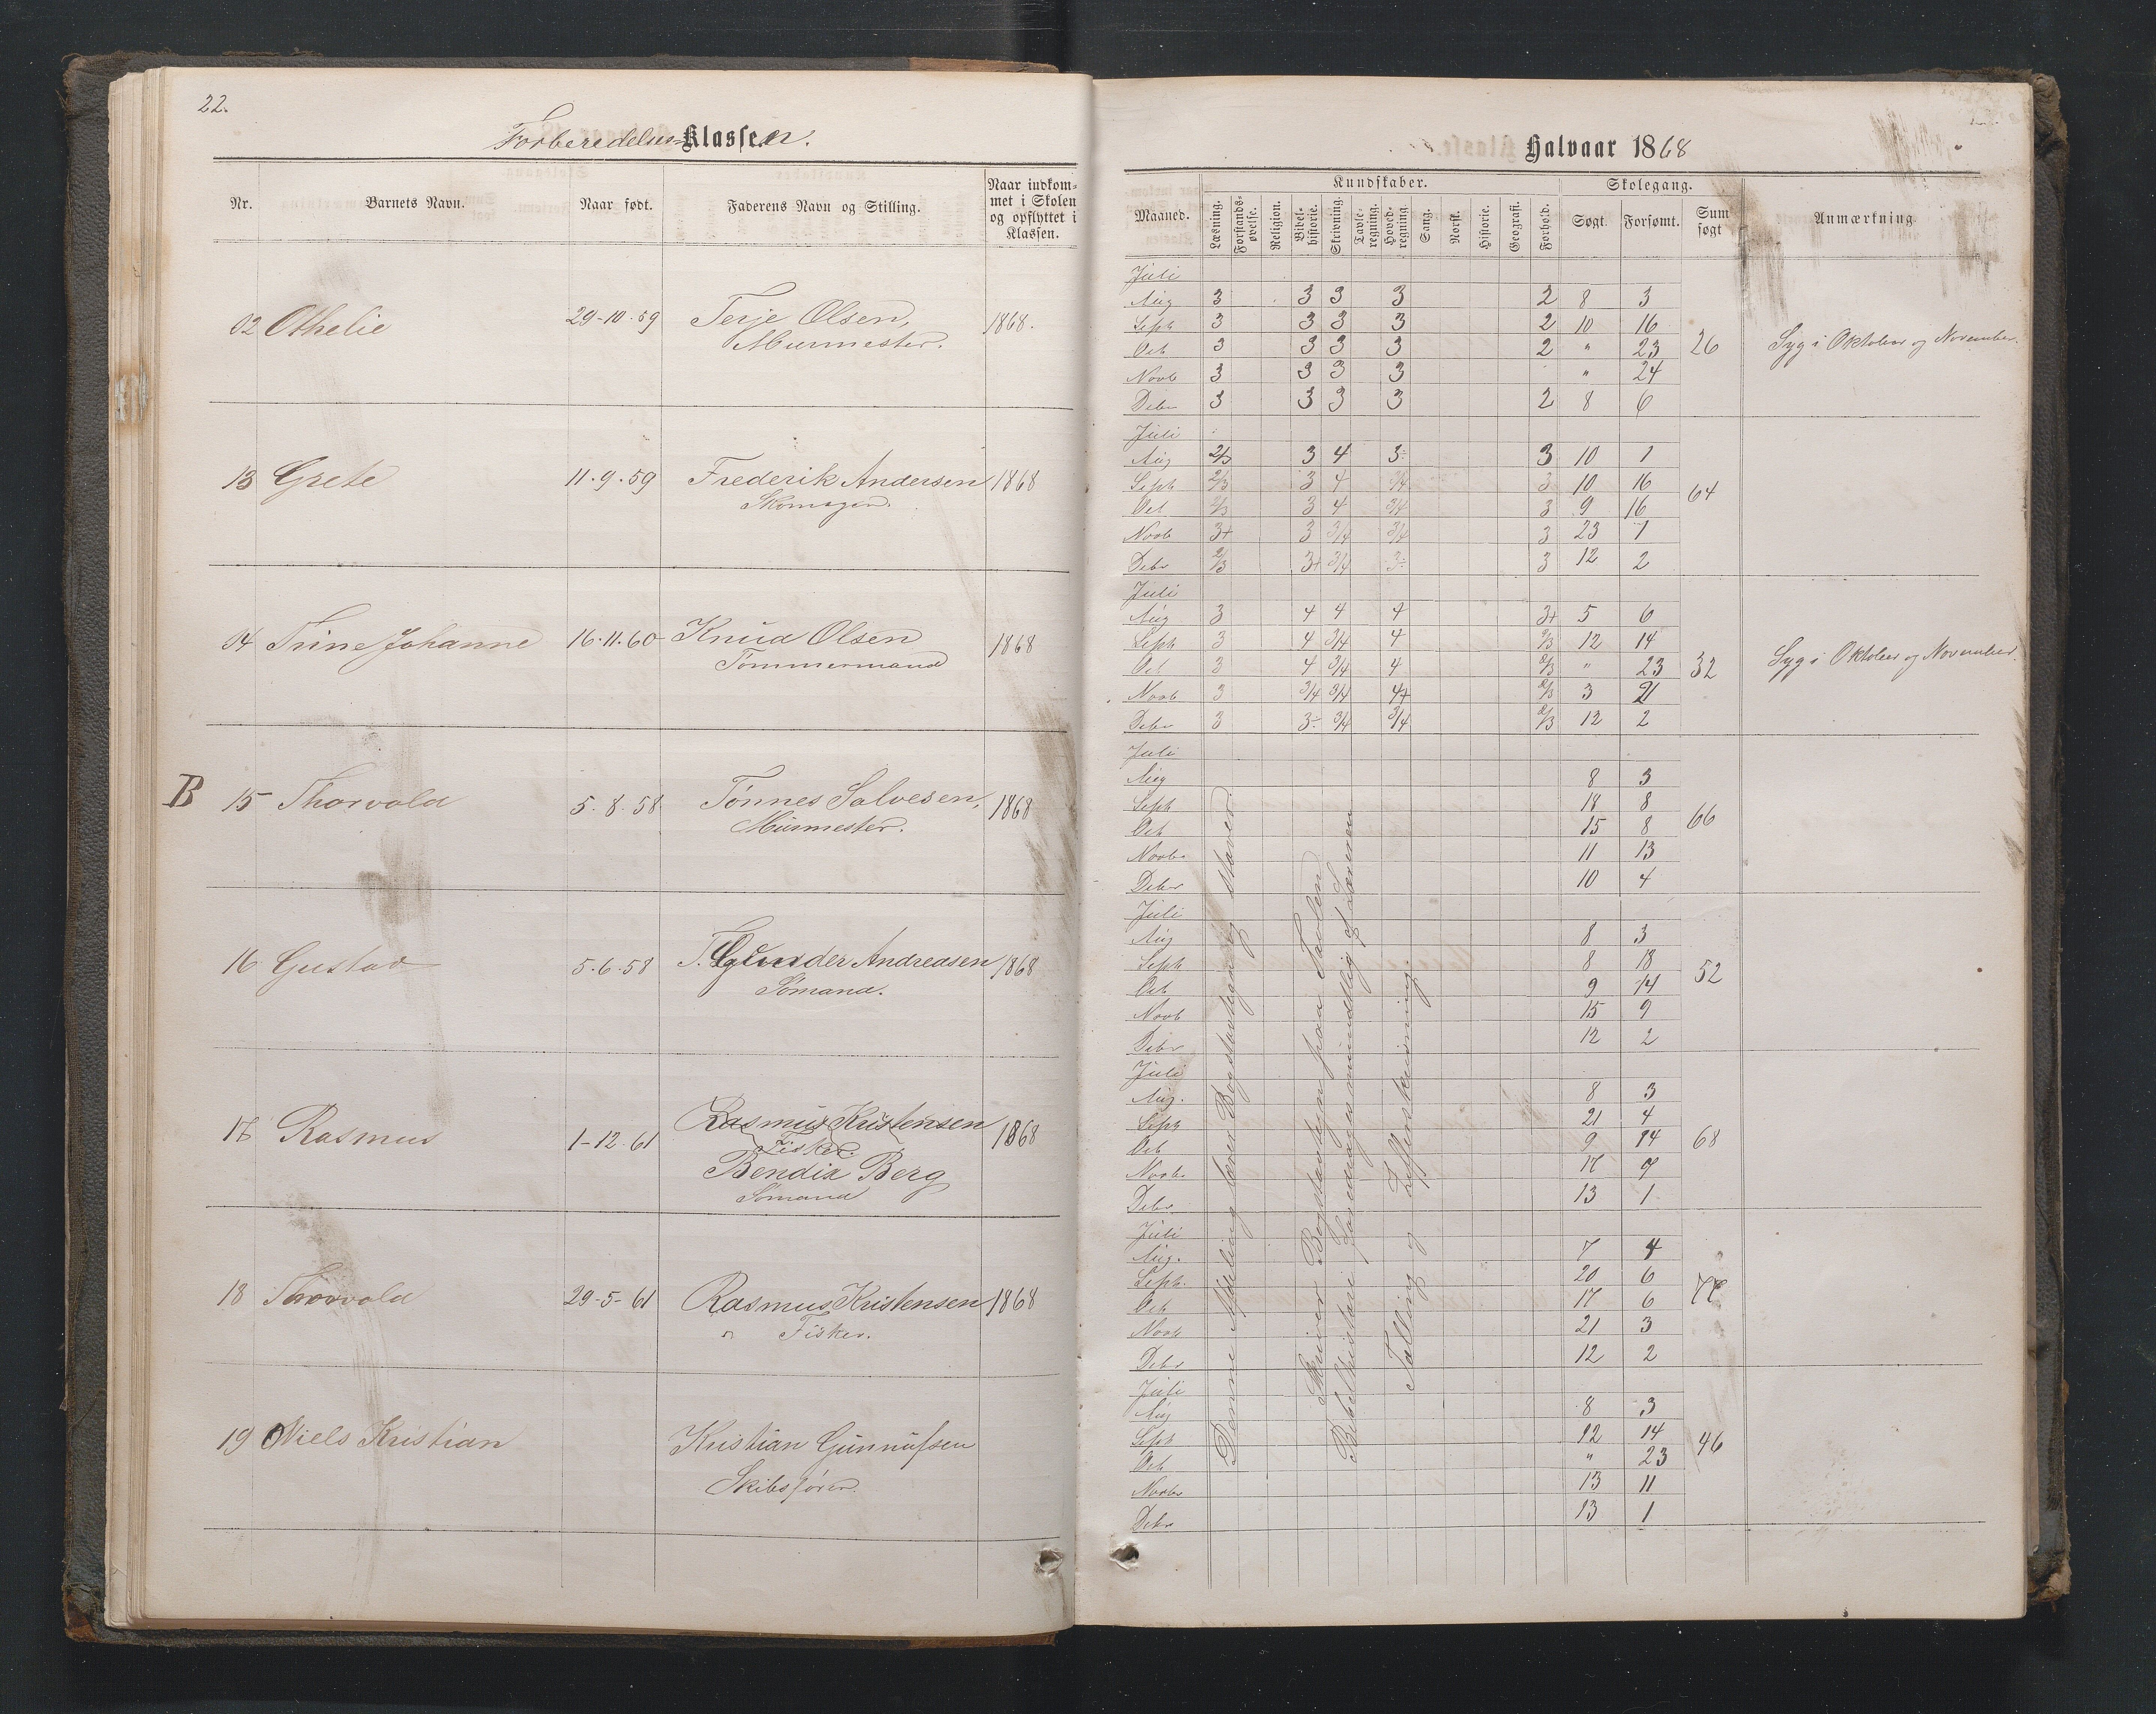 22.
Forberedelses-Klassen.
Nr. Barnets Navn. Naar født. Faderens Navn og Stilling. Naar indkommet i Skolen og opflyttet i Klassen.
02 Othelie 29-10-59 Terje Olsen, 1868.
Murmester.
13 Grete 11-9-59 Frederik Andersen 1868
Skomager.
04 Trine Johanne 16-11-60 Knud Olsen 1868
Tømmermand
B 15 Thorvald 5-8-58 Tønnes Salvesen, 1868
Murmester.
16 Gustav 5-6-58 T. Gunder Andreasen 1868
Sømand.
17 Rasmus 1-12-61 Rasmus Kristensen 1868
Fisker.
Bendix Berg
Sømand
18 Thorvald 29-5-61 Rasmus Kristensen 1868
Fisker.
19 Niels Kristian Kristian Gunnufsen
Skibsfører
Halvaar 1868
Kundskaber. Skolegang.
Maaned. Læsning. Forstandsøvelse. Religion. Bibelhistorie. Skrivning. Tavleregning. Hovedregning. Sang. Norsk. Historie. Geografi. Forhold. Søgt. Forsømt. Sum søgt Anmærkning
Juli
Aug 3 3 3 3 2 8 3
Septr 3 3 3 3 2 10 16
Oct 3 3 3 3 2 " 23 26 Syg i Oktober og November.
Novb 3 3 3 3 " 24
Debr 3 3 3 3 2 8 6
Juli
Aug 2/3 3 4 3÷ 3 10 1
Septr 2/3 3 4 3/4 3 10 16 64
Oct 2/3 3 4 3/4 3 9 16
Novb 3+ 3 3/4 3/4 3 23 1
Debr 2/3 3+ 3/4 3÷ 3 12 2
Juli
Aug 3 4 4 4 3+ 5 6
Septr 3 4 3/4 4 2/3 12 14
Oct 3 4 3/4 4 2/3 " 23 32 Syg i Oktober og November.
Novb 3 3/4 3/4 4+ 2/3 3 21
Debr 3 3÷ 3/4 3/4 2/3 12 2
Juli
Aug 8 3
Septr 18 8
Oct 15 8 66
Novbr 11 13
Debr 10 4
Juli
Aug 8 3
Septr 8 18
Oct 9 14 52
Novb 15 9
Debr 12 2
Juli
Aug. 8 3
Septr 21 4
Oct 9 14 68
Novbr 17 7
Debr. 13 1
Juli
Aug. 7 4
Septr. 20 6
Oct 17 6 77
Novb 21 3
Debr 12 2
Juli
Aug 8 3
Septr 12 14
Oct " 23 46
Novbr 13 11
Debr 13 1
Denne Afdeling lærer Bogstavtegn og staver
Skriver Bogstavtegn paa Tavlen
Bibelhistorie foredrages mundtlig af Læreren
Tælling og Zifferskrivning.